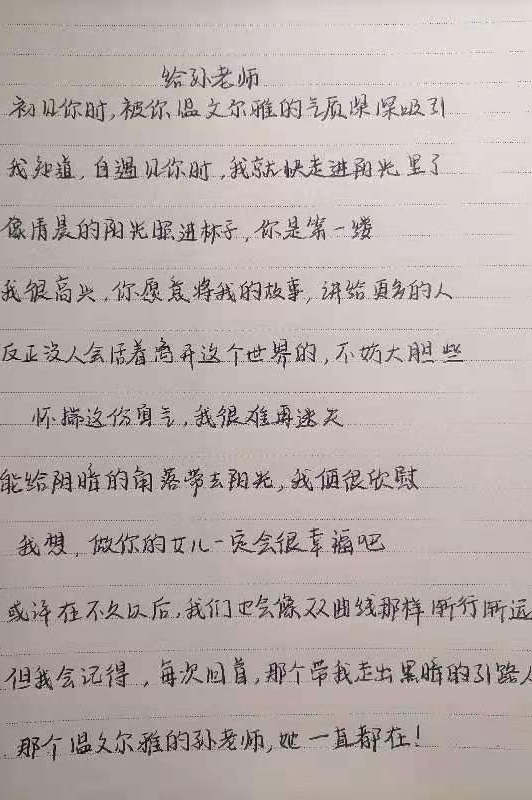 给孙老师
初见你时,被你温文尔雅的气质深深吸引
我知道,自遇见你时,我就快走进阳光里了
像清晨的阳光照进林子,你是第一缕
我很高兴,你愿意将我的故事,讲给更多的人
反正没人会活着离开这个世界的,不妨大胆些
怀揣这份勇气,我很难再迷失
能给阴暗的角落带去阳光,我便很欣慰
我想,做你的女儿一定会很幸福吧
或许在不久以后,我们也会像双曲线那样渐行渐远
但我会记得,每次回首,那个带我走出黑暗的引路人
那个温文尔雅的孙老师,她一直都在!